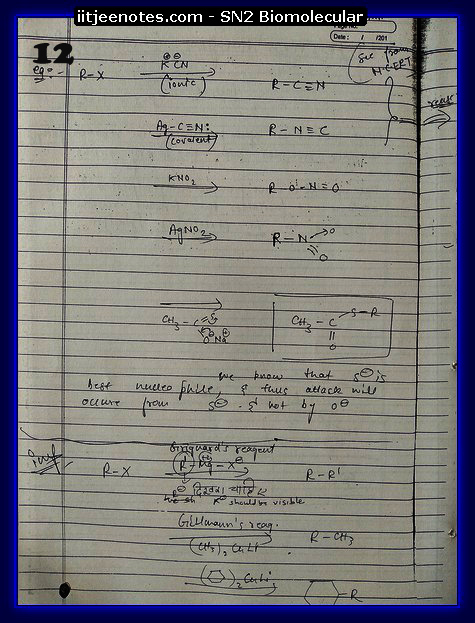 iitjeenotes.com - SN2 Biomolecular
Date : / /201
12
see from
NCERT
eg:- R-X K⊕ CN⊖ R-C≡N
(ionic)
Ag-C≡N: R-N≡C
(covalent)
KNO2 R O-N=O
AgNO2 R-N→O
O
CH3-C=S
O⊖ Na⊕
CH3-C-S-R
O
we know that S⊖ is
best nucleophile, & thus attack will
occure from S⊖ & not by O⊖
Grignard's reagent
R-X R-Mg-X R-R'
R⊖ दिखना चाहिए
R⊖ should be visible
Gillmann's reag.
(CH3)2 CuLi R-CH3
( )2 CuLi
R